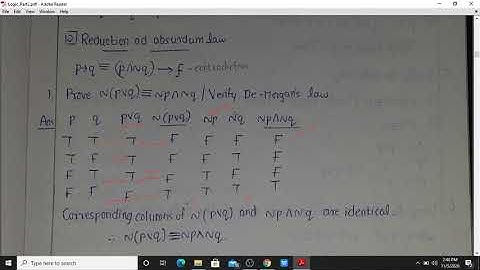 Logic_Part2.pdf - Adobe Reader
File Edit View Window Help
10 Reduction ad absurdum law
p→q ≡ (p∧~q) → f - contradiction
1. Prove ~(p∨q) ≡ ~p∧~q / Verify De-Morgan's law
Ans p q p∨q ~(p∨q) ~p ~q ~p∧~q
T T T F F F F
T F T F F T F
F T T F T F F
F F F T T T T
Corresponding columns of ~(p∨q) and ~p∧~q are identical.
∴ ~(p∨q) ≡ ~p∧~q
Type here to search
2:46 PM